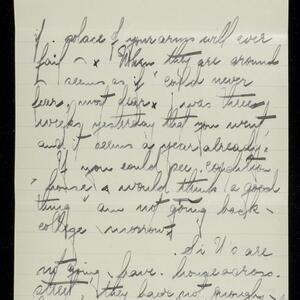 if place of your arms will ever
fail x x When they are around
I seems as if I could never
bear, most dear x I was three
weeks yesterday that you went
and it seems a year already.
If you could see condition
house would think a good
thing I am not going back
college morrow
Si U s are
not going have house across
street they have not enough